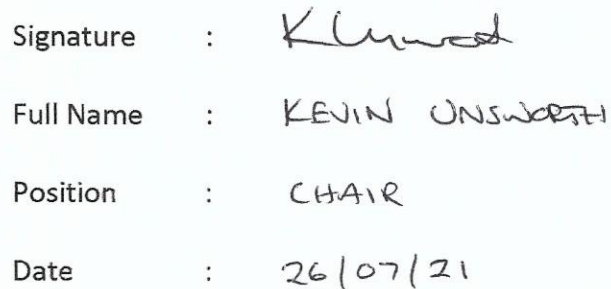 Signature :
Full Name : KEVIN UNSWORTH
Position : CHAIR
Date : 26/07/21